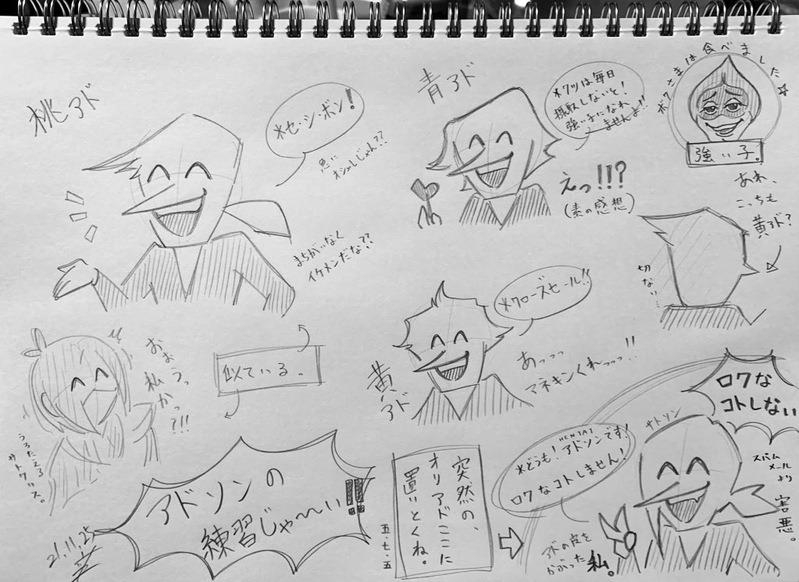 桃アド
*セ・シ・ボン!
思いオシャレじゃん??
まちがいなく
イケメンだな??
青アド
*クツは毎日
摂取しないと!
強い子になれ
ませんよ!!
えっ!!?
(素の感想)
ボクさまは食べました☆
強い子。
あれ、
こっちも
黄アド?
切ない
*クローズセール!!
黄アド
あっっっ
マネキンくれっっっ!!
おぉうっ
私かっ?!!
うろたえる
サトクリス。
似ている。
アドソンの
練習じゃ〜〜い!!
21,11,25
突然の、
オリアドここに
置いとくね。
五・七・五
HENTAI
*どうも!アドソンです!
ロクなコトしません!
アドの皮を
かぶった
私。
サトソン
ロクな
コトしない
スパム
メール
より
害悪。